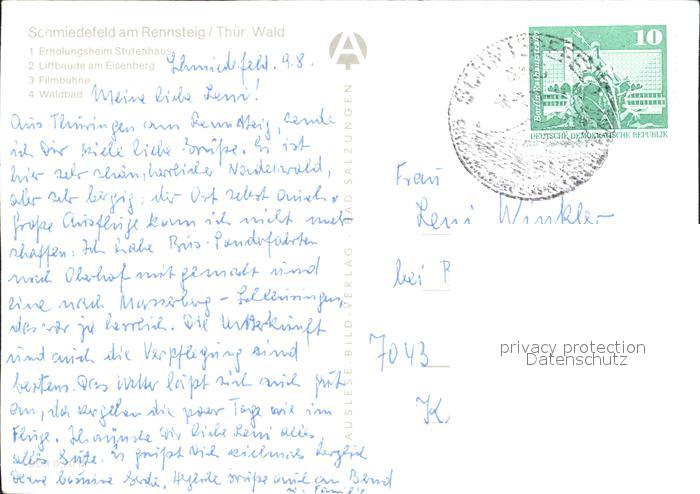 Schmiedefeld am Rennsteig / Thür. Wald
1 Erholungsheim Stutenhaus
2 Liftbaude am Eisenberg
3 Filmbühne
4 Waldbad
Schmiedefeld. 9.8.
Meine liebe Leni!
Aus Thüringen am Rennsteig, sende
ich Dir viele liebe Grüße. Es ist
hier sehr schön, herrlicher Nadelwald,
aber sehr bergig, der Ort selbst auch.
große Ausflüge kann ich nicht mehr
schaffen. Ich habe Bus-Sonderfahrten
nach Oberhof mitgemacht und
eine nach Masserberg - Schleusingen
das war ja herrlich. Die Unterkunft
und auch die Verpflegung sind
bestens. Das Wetter läßt sich auch gut
an, da vergehen die paar Tage wie im
Fluge. Ich wünsche Dir liebe Leni alles,
alles Gute. Es grüßt Dich vielmals herzlich
Deine Herzliche Grüße auch an Bernd
u. Familie
AUSLESE-BILD-VERLAG BAD SALZUNGEN
10
Berlin, Rathausstraße
DEUTSCHE DEMOKRATISCHE REPUBLIK
Frau
Leni Winkler
bei
7043
K
privacy protection
Datenschutz